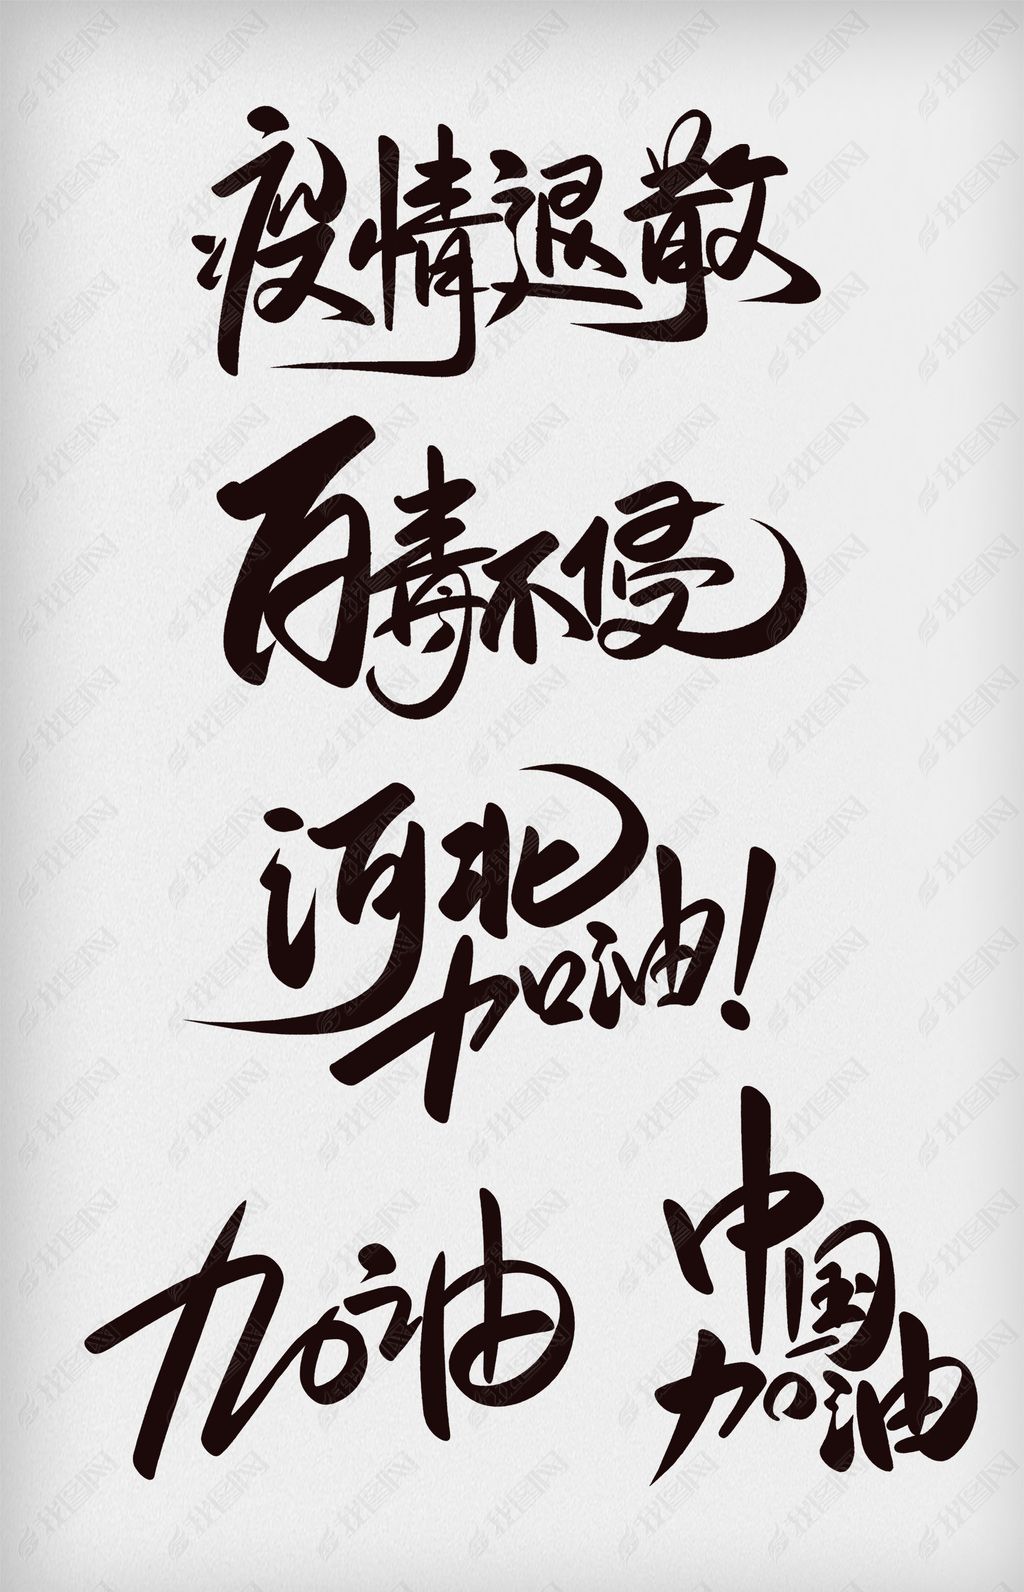 疫情退散
百毒不侵
河北
加油！
加油
中国
加油